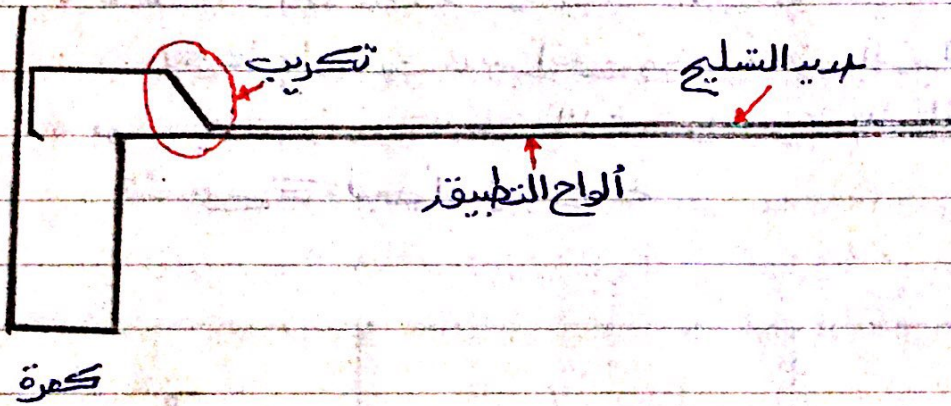 تكريب
حديد التسليح
ألواح التطبيق
كمرة